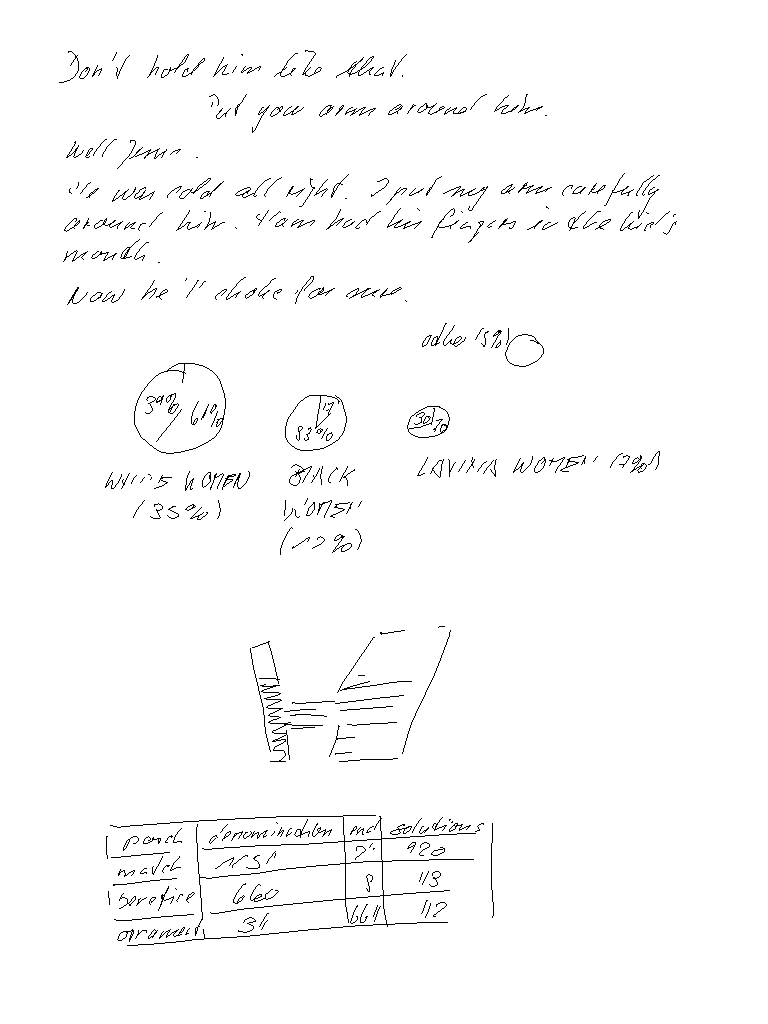 Don't hold him like that.
Put your arm around him.
Well Jesus.
He was cold all right. I put my arm carefully
around him. Ham had his fingers in the kid's
mouth.
Now he'll choke for sure.
other (5%)
39% 61%
17
83%
30 70
WHITE WOMEN
(35%)
BLACK
WOMEN
LATINA WOMEN (7%)
porch denomination end solutions
match 920
benefice 660 8 113
ornament 112